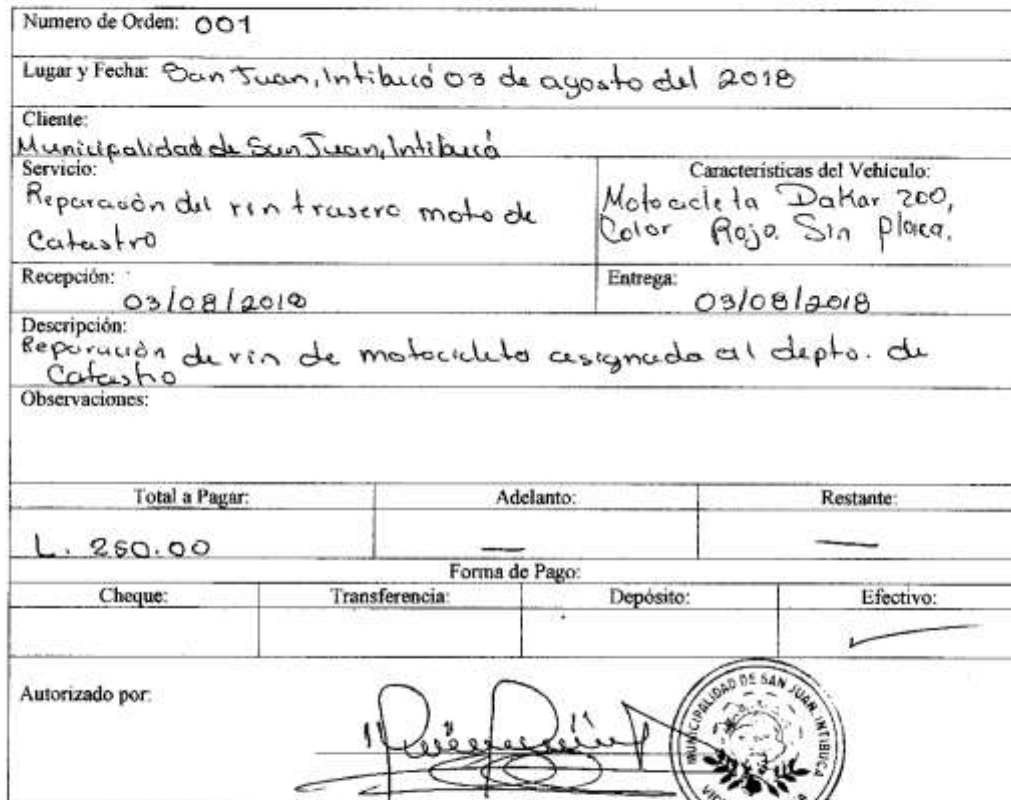 Numero de Orden: 001
Lugar y Fecha: San Juan, Intibucá 03 de agosto del 2018
Cliente:
Municipalidad de San Juan, Intibucá
Servicio:
Reparación del rin trasero moto de
Catastro
Características del Vehículo:
Motocicleta Dakar 200,
Color Rojo. Sin placa.
Recepción:
03/08/2018
Entrega:
03/08/2018
Descripción:
Reparación de rin de motocicleta asignada al depto. de
Catastro
Observaciones:
Total a Pagar:
Adelanto:
Restante:
L. 250.00
—
—
Forma de Pago:
Cheque:
Transferencia:
Depósito:
Efectivo:
Autorizado por:
MUNICIPALIDAD DE SAN JUAN, INTIBUCA